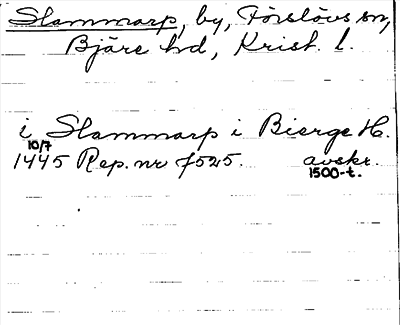 Slammarp, by, Förslövs sn,
Bjäre hd, Krist. l.
i Slammarp i Bierge H.
10/7
1445 Rep. nr 7525. avskr.
1500-t.